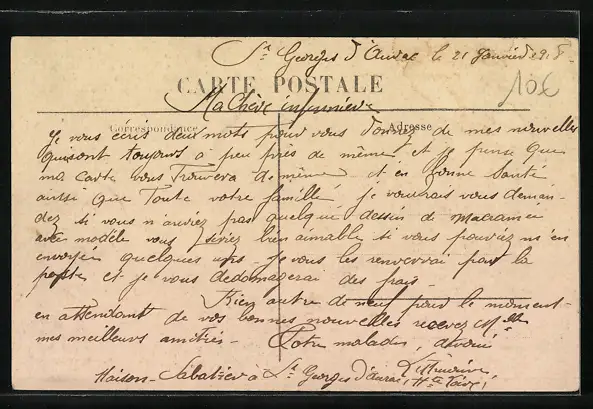 St Georges d'Aurac le 21 Janvier 1918
10€
CARTE POSTALE
Ma Chère infirmière
Correspondance Adresse
Je vous écris deux mots pour vous donnez de mes nouvelles
qui sont toujours à peu près de même et je pense que
ma carte vous trouvera de même et en bonne santé
ainsi que toute votre famille. je voudrais vous deman-
dez si vous n'auriez pas quelque dessin de macramé
avec modèle vous seriez bien aimable si vous pouviez m'en
envoyer quelques uns je vous les renverrai par la
poste et je vous dedomagerai des frais.
Rien autre de neuf pour le moment
en attendant de vos bonnes nouvelles recevez Mlle
mes meilleurs amitiés. Votre malade, dévoué
Maison Sabatier à St Georges d'Aurac Hte Loire